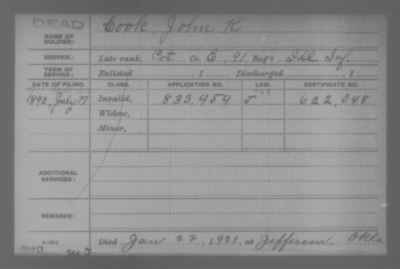 DEAD
NAME OF SOLDIER: Cook John K
SERVICE: Late rank, Pvt Co. E, 91 Reg't Ill Inf.
TERM OF SERVICE: Enlisted , 1 Discharged , 1
DATE OF FILING. CLASS. APPLICATION NO. LAW. CERTIFICATE NO.
1890, July 17 Invalid, 833,454 622,048
Widow,
Minor,
ADDITIONAL SERVICES:
REMARKS:
Died Jan 22, 1921, at Jefferson, Okla